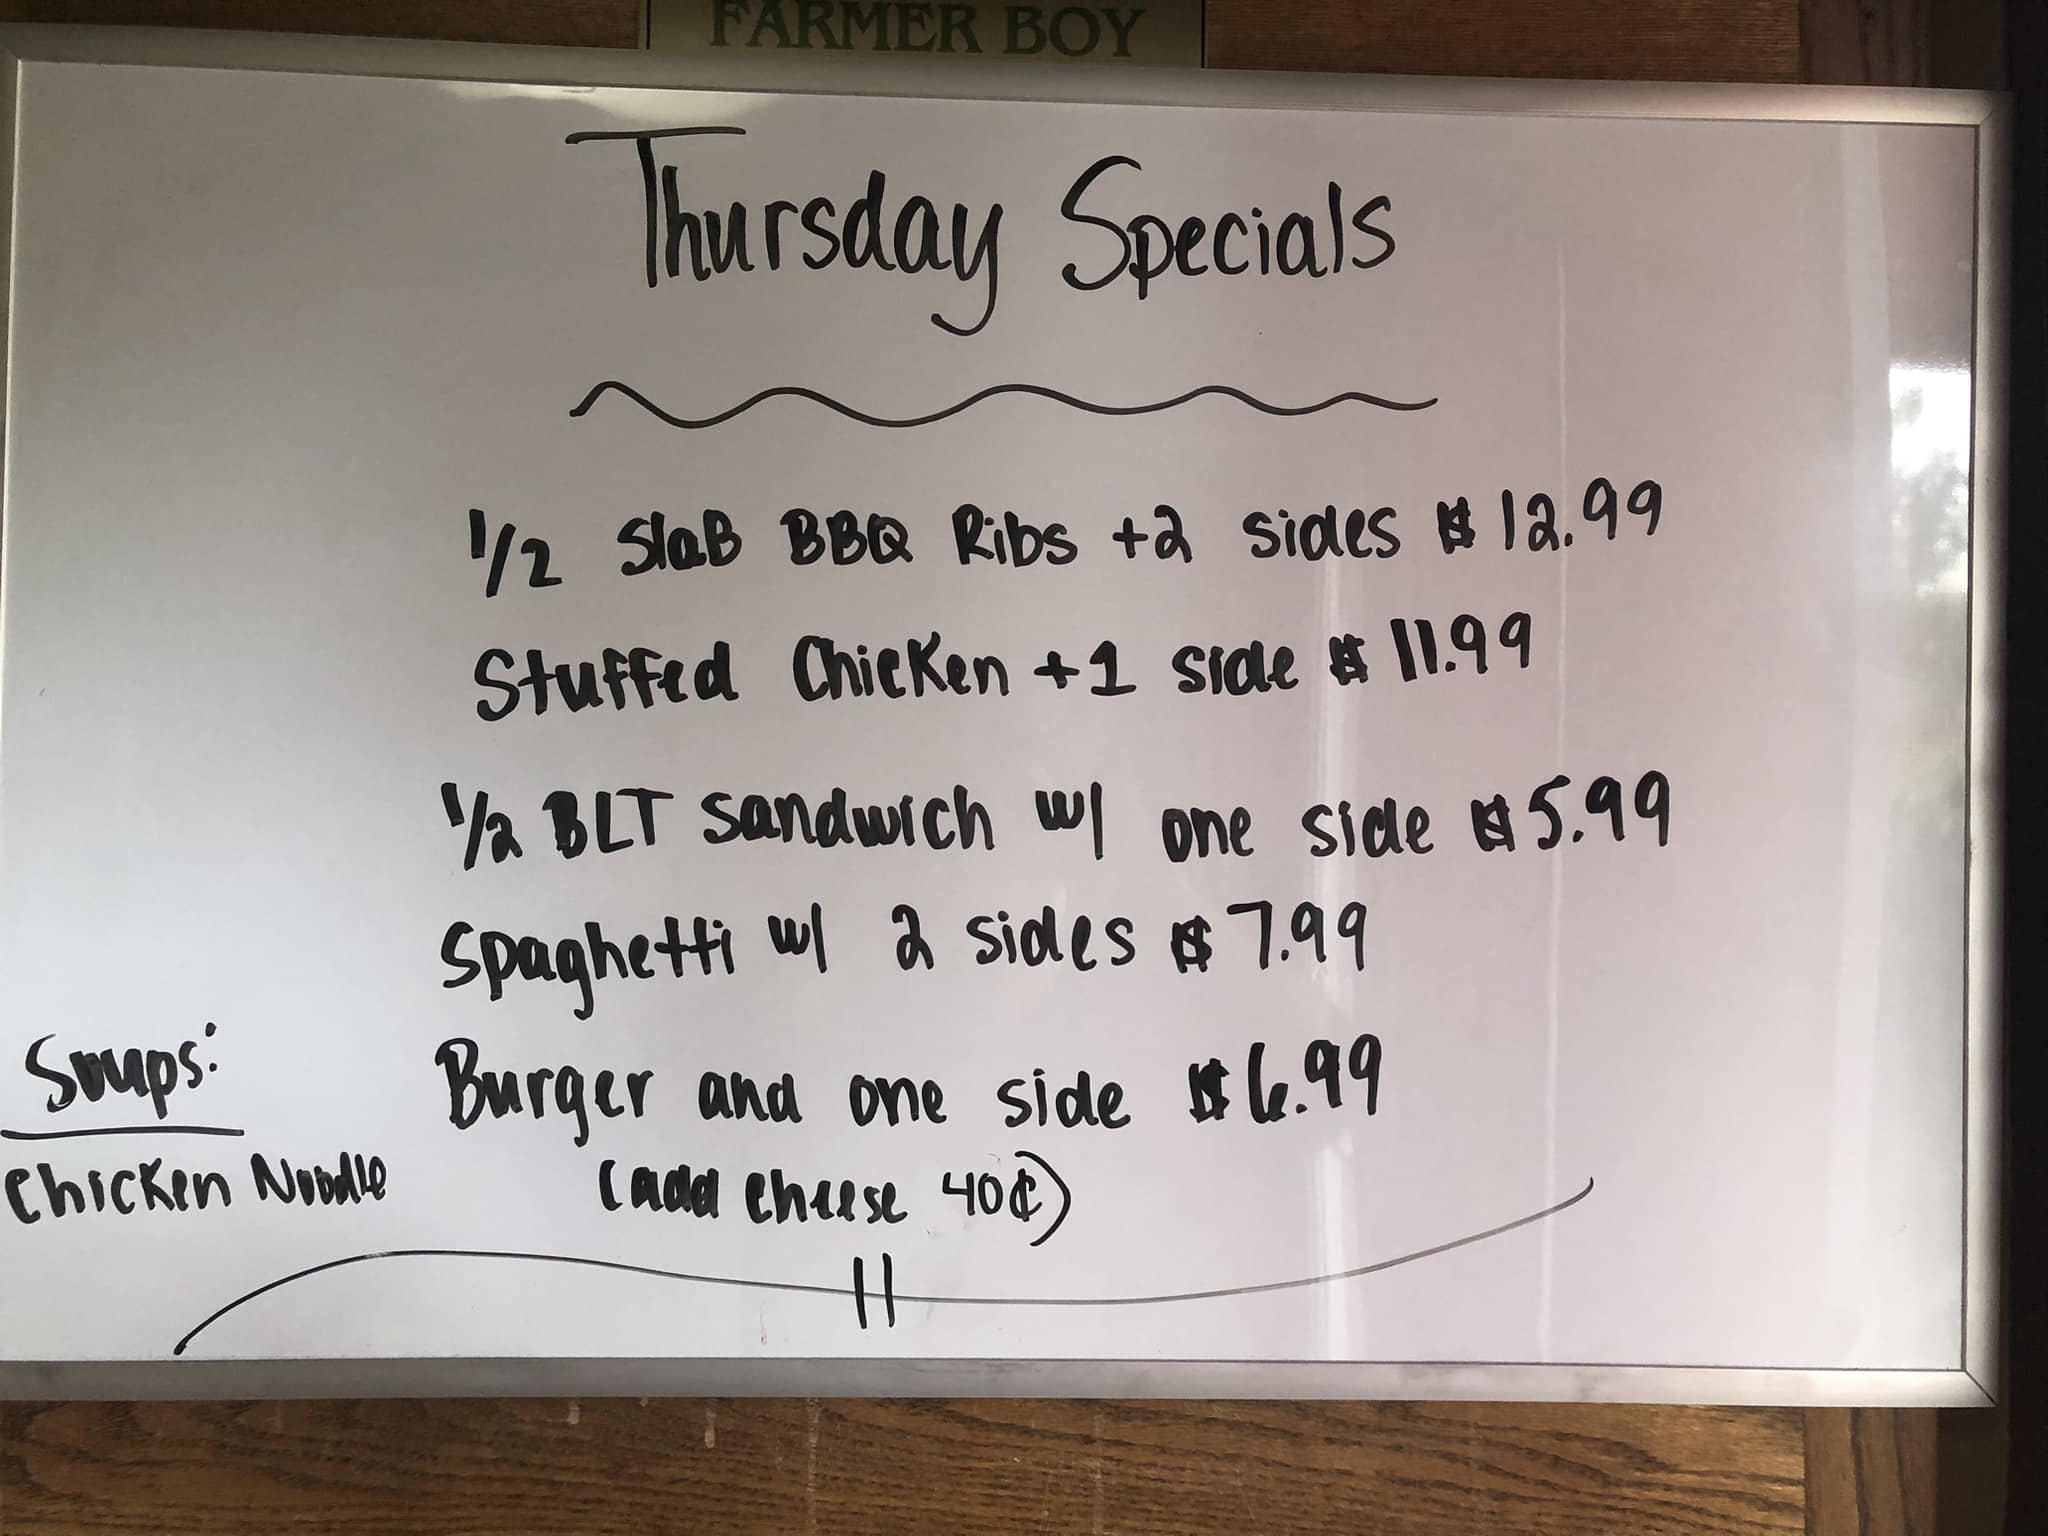 FARMER BOY
Thursday Specials
1/2 SlaB BBQ Ribs +2 sides $12.99
Stuffed Chicken +1 side $11.99
1/2 BLT Sandwich w/ one side $5.99
Spaghetti w/ 2 sides $7.99
Burger and one side $6.99
(add cheese 40¢)
Soups:
Chicken Noodle